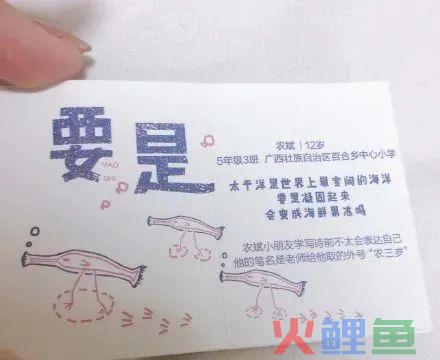 要是
YAO
SHI
农斌 | 12岁
5年级3班 广西壮族自治区百合乡中心小学
太平洋是世界上最宽阔的海洋
要是凝固起来
会变成海鲜果冻吗
农斌小朋友学写诗前不太会表达自己
他的笔名是老师给他取的外号“农三岁”
火鲤鱼